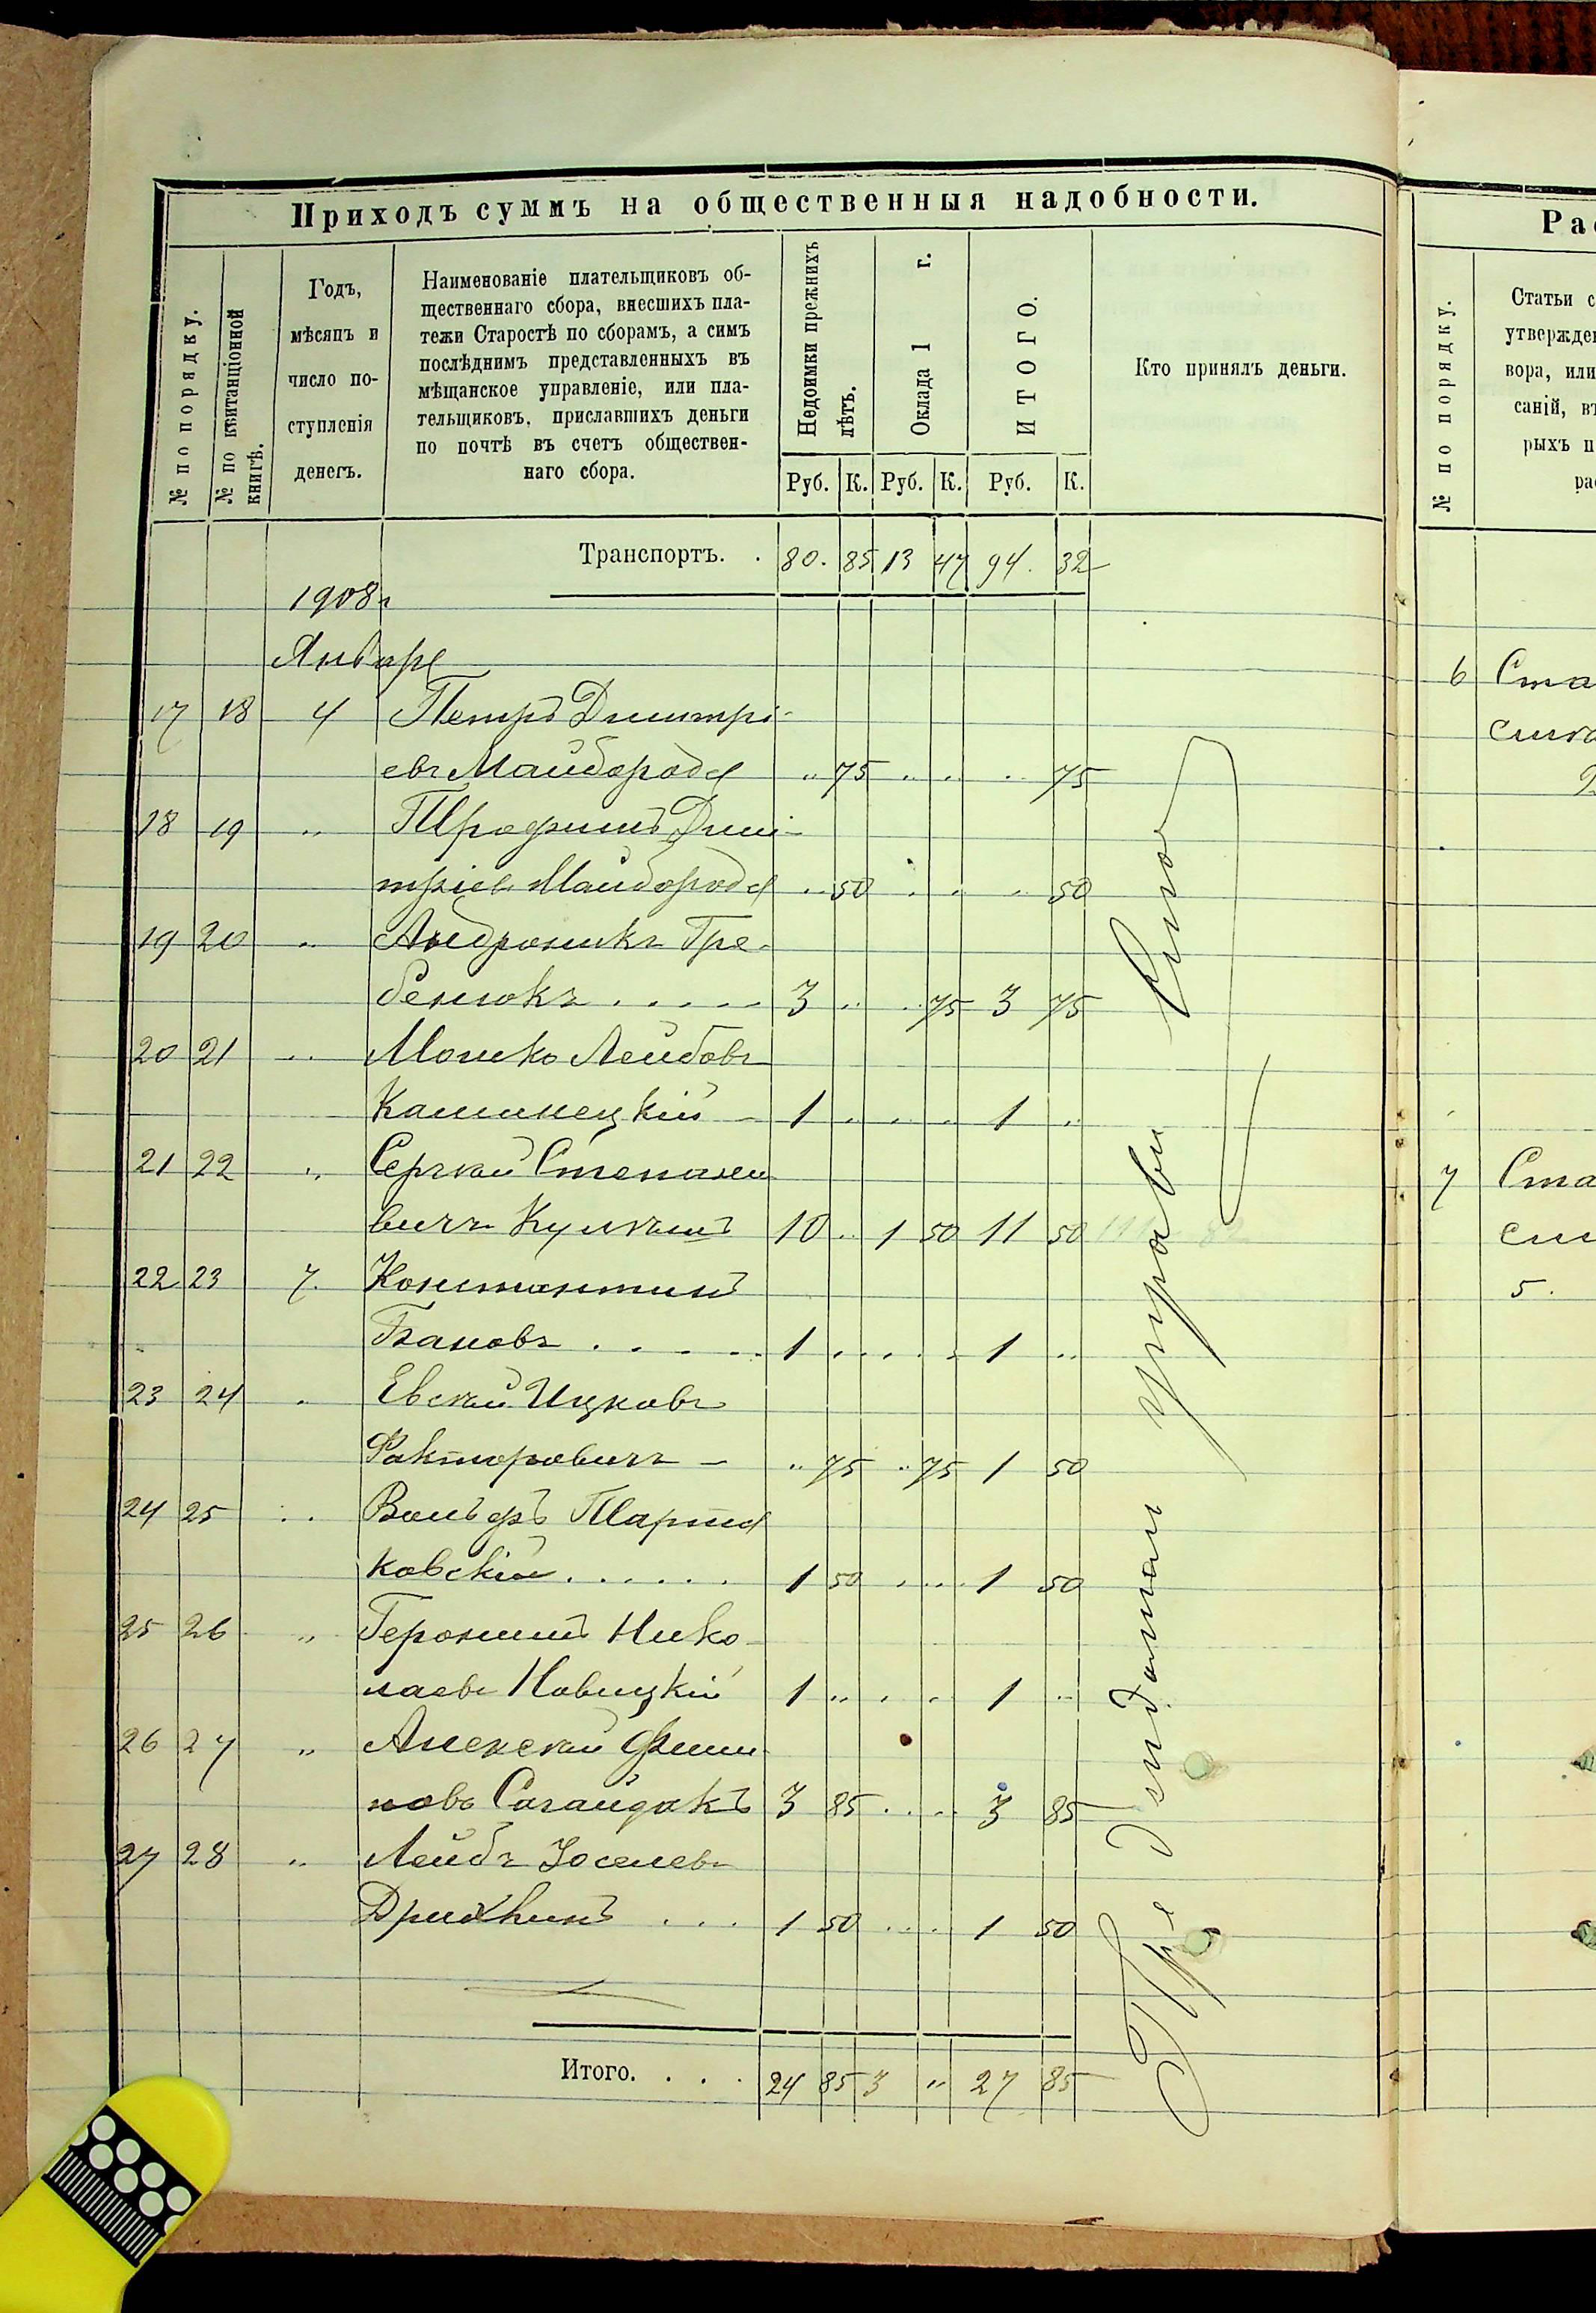 Приходъ суммъ на общественныя надобности.
№ по порядку.
№ по квитанціонной книгѣ.
Годъ,
мѣсяцъ и
число по-
ступленія
денегъ.
Наименованіе плательщиковъ об-
щественнаго сбора, внесшихъ пла-
тежи Старостѣ по сборамъ, а симъ
послѣднимъ представленныхъ въ
мѣщанское управленіе, или пла-
тельщиковъ, приславшихъ деньги
по почтѣ въ счетъ обществен-
наго сбора.
Недоимки прежнихъ лѣтъ.
Оклада 1 г.
ИТОГО.
Кто принялъ деньги.
Руб. К. Руб. К. Руб. К.
Транспортъ. . 80. 85 13 47 94. 32
1908 г
Января
17 18 4 Петръ Дмитрі-
евъ Майборода " 75 " . . 75
18 19 " Трофимъ Дми-
тріевъ Майборода " 50 . . . 50
19 20 " Андроникъ Гре-
бенюкъ . . . . . 3 " . 75 3 75
20 21 " Мошко Лейбовъ
Каминецкій 1 . . . 1 "
21 22 " Сергѣй Степано
вичъ 10 " 1 50 11 50
22 23 7. Константинъ
1 . . . . 1 "
23 24 " Ицковъ
Факторовичъ " 75 " 75 1 50
24 25 " Вольфъ
ковскій . . . . . . 1 50 . . . 1 50
25 26 " Геронимъ Нико
лаевъ Новицкій 1 " . " 1 "
26 27 " Алексѣй
новъ Сагайдакъ 3 85 . . . 3 85
27 28 " Лейбъ Іоселевъ
1 50 . . . 1 50
Итого. . . . 24 85 3 " 27 85
управы
Рас
№ по порядку.
Статьи с
утвержде
вора, или
саній, въ
рыхъ п
рас
6 Ста
7 Ста
5.